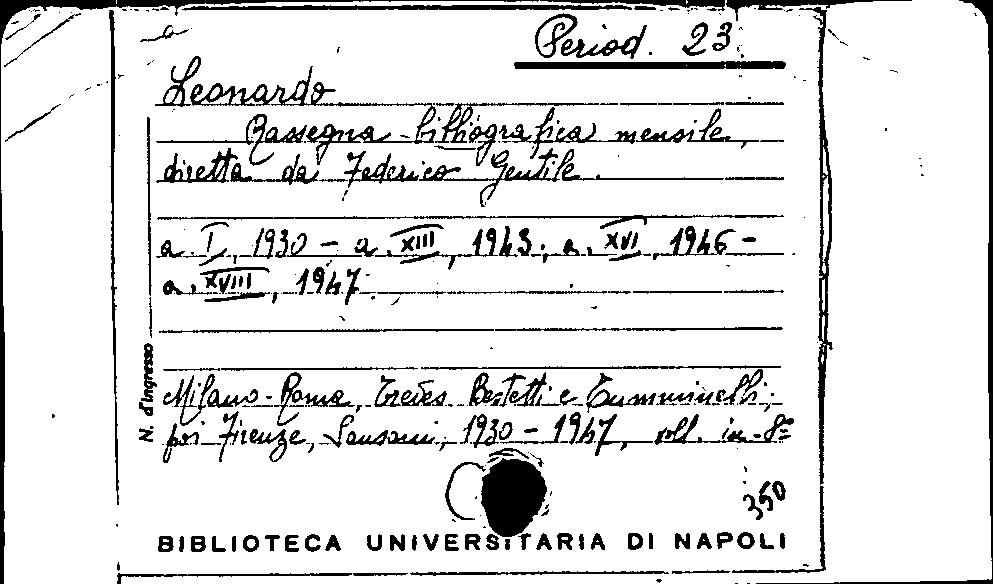 Period. 23
Leonardo
Rassegna bibliografica mensile,
diretta da Federico Gentile.
a. I, 1930 - a. XIII, 1943; a. XVI, 1946 -
a. XVIII, 1947.
Milano-Roma, Treves Bestetti e Tumminelli;
poi Firenze, Sansoni, 1930 - 1947, voll. in-8°
350
N. d'Ingresso
BIBLIOTECA UNIVERSITARIA DI NAPOLI